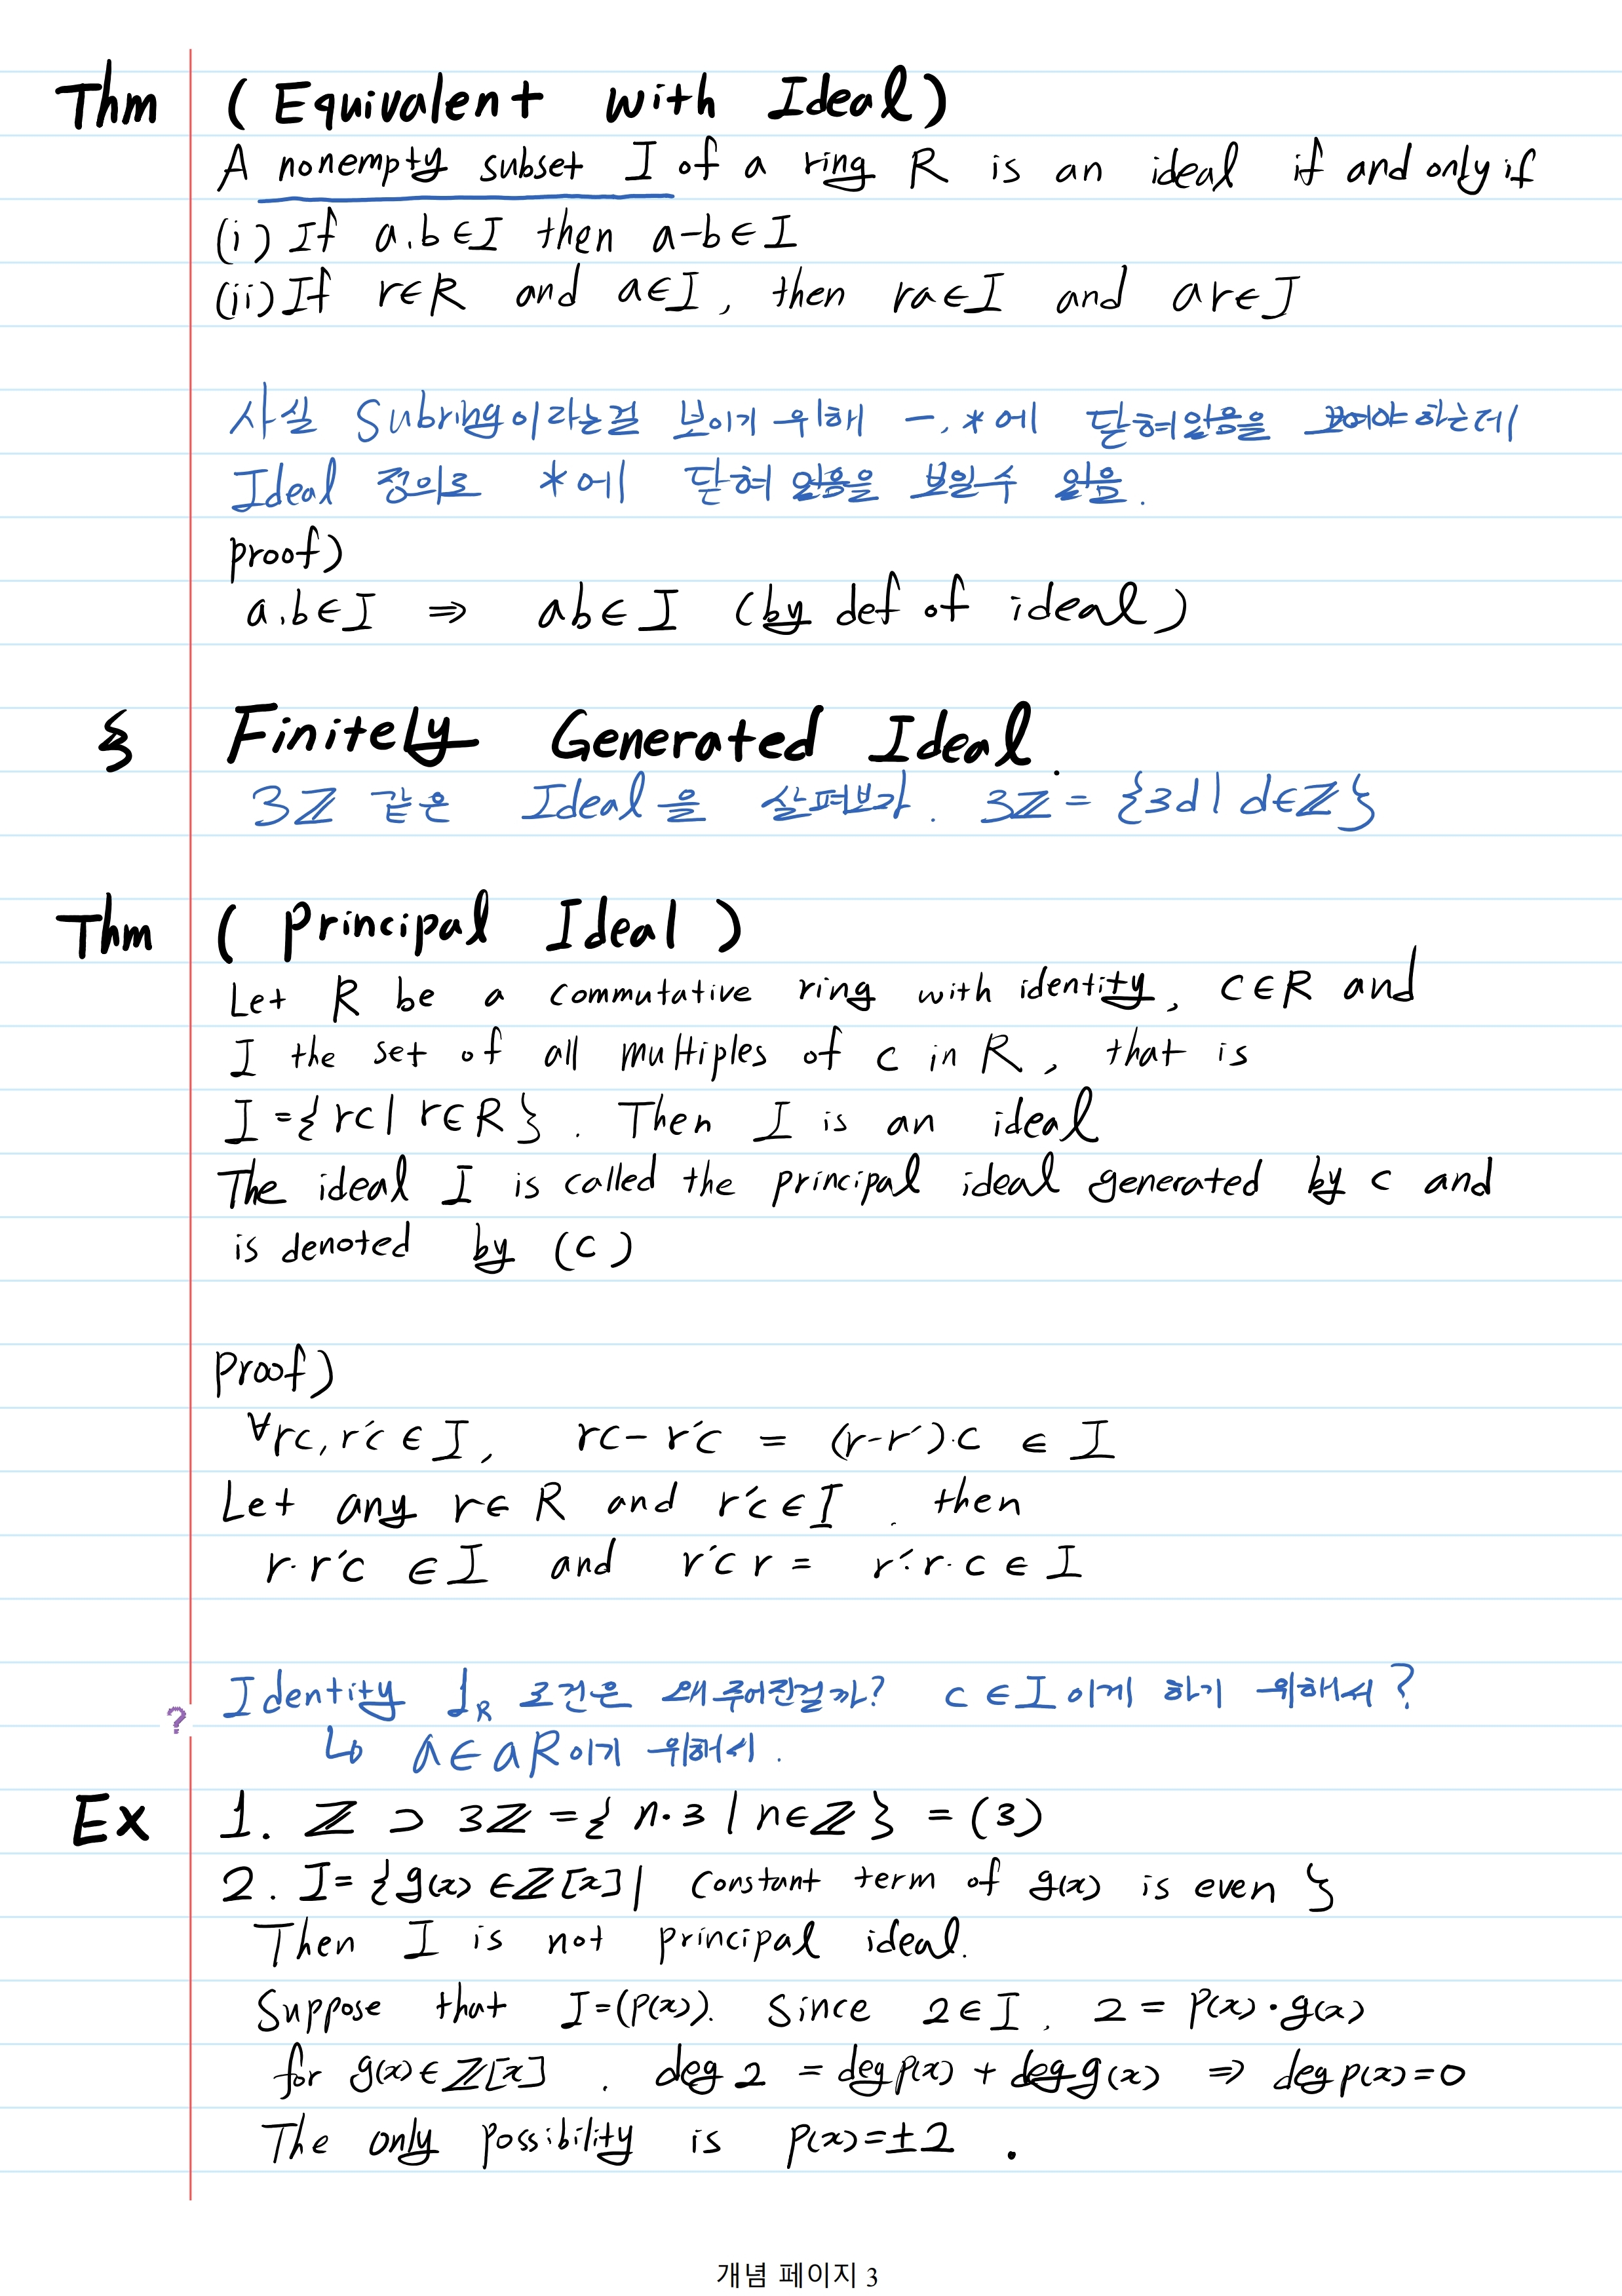 Thm (Equivalent with Ideal)
A nonempty subset I of a ring R is an ideal if and only if
(i) If a,b∈I then a-b∈I
(ii) If r∈R and a∈I, then ra∈I and ar∈I
사실 Subring이라는걸 보이기 위해 -, *에 닫혀있음을 보여야 하는데
Ideal 정의로 *에 닫혀 있음을 보일수 있음.
proof)
a,b∈I ⇒ ab∈I (by def of ideal)
§ Finitely Generated Ideal.
3ℤ 같은 Ideal을 살펴보자. 3ℤ = {3d | d∈ℤ}
Thm (Principal Ideal)
Let R be a commutative ring with identity, c∈R and
I the set of all multiples of c in R, that is
I={rc | r∈R}. Then I is an ideal
The ideal I is called the principal ideal generated by c and
is denoted by (c)
Proof)
∀rc, r'c∈I, rc-r'c = (r-r')·c ∈ I
Let any r∈R and r'c∈I. then
r·r'c ∈I and r'cr = r'·r·c ∈ I
Identity 1_R 조건은 왜 주어진걸까? c∈I이게 하기 위해서?
? ↳ a∈aR이기 위해서.
Ex 1. ℤ ⊃ 3ℤ = {n·3 | n∈ℤ} = (3)
2. I={g(x)∈ℤ[x] | constant term of g(x) is even}
Then I is not principal ideal.
Suppose that I=(p(x)). Since 2∈I, 2 = p(x)·g(x)
for g(x)∈ℤ[x]. deg 2 = deg p(x) + deg g(x) ⇒ deg p(x)=0
The only possibility is p(x)=±2.
개념 페이지 3